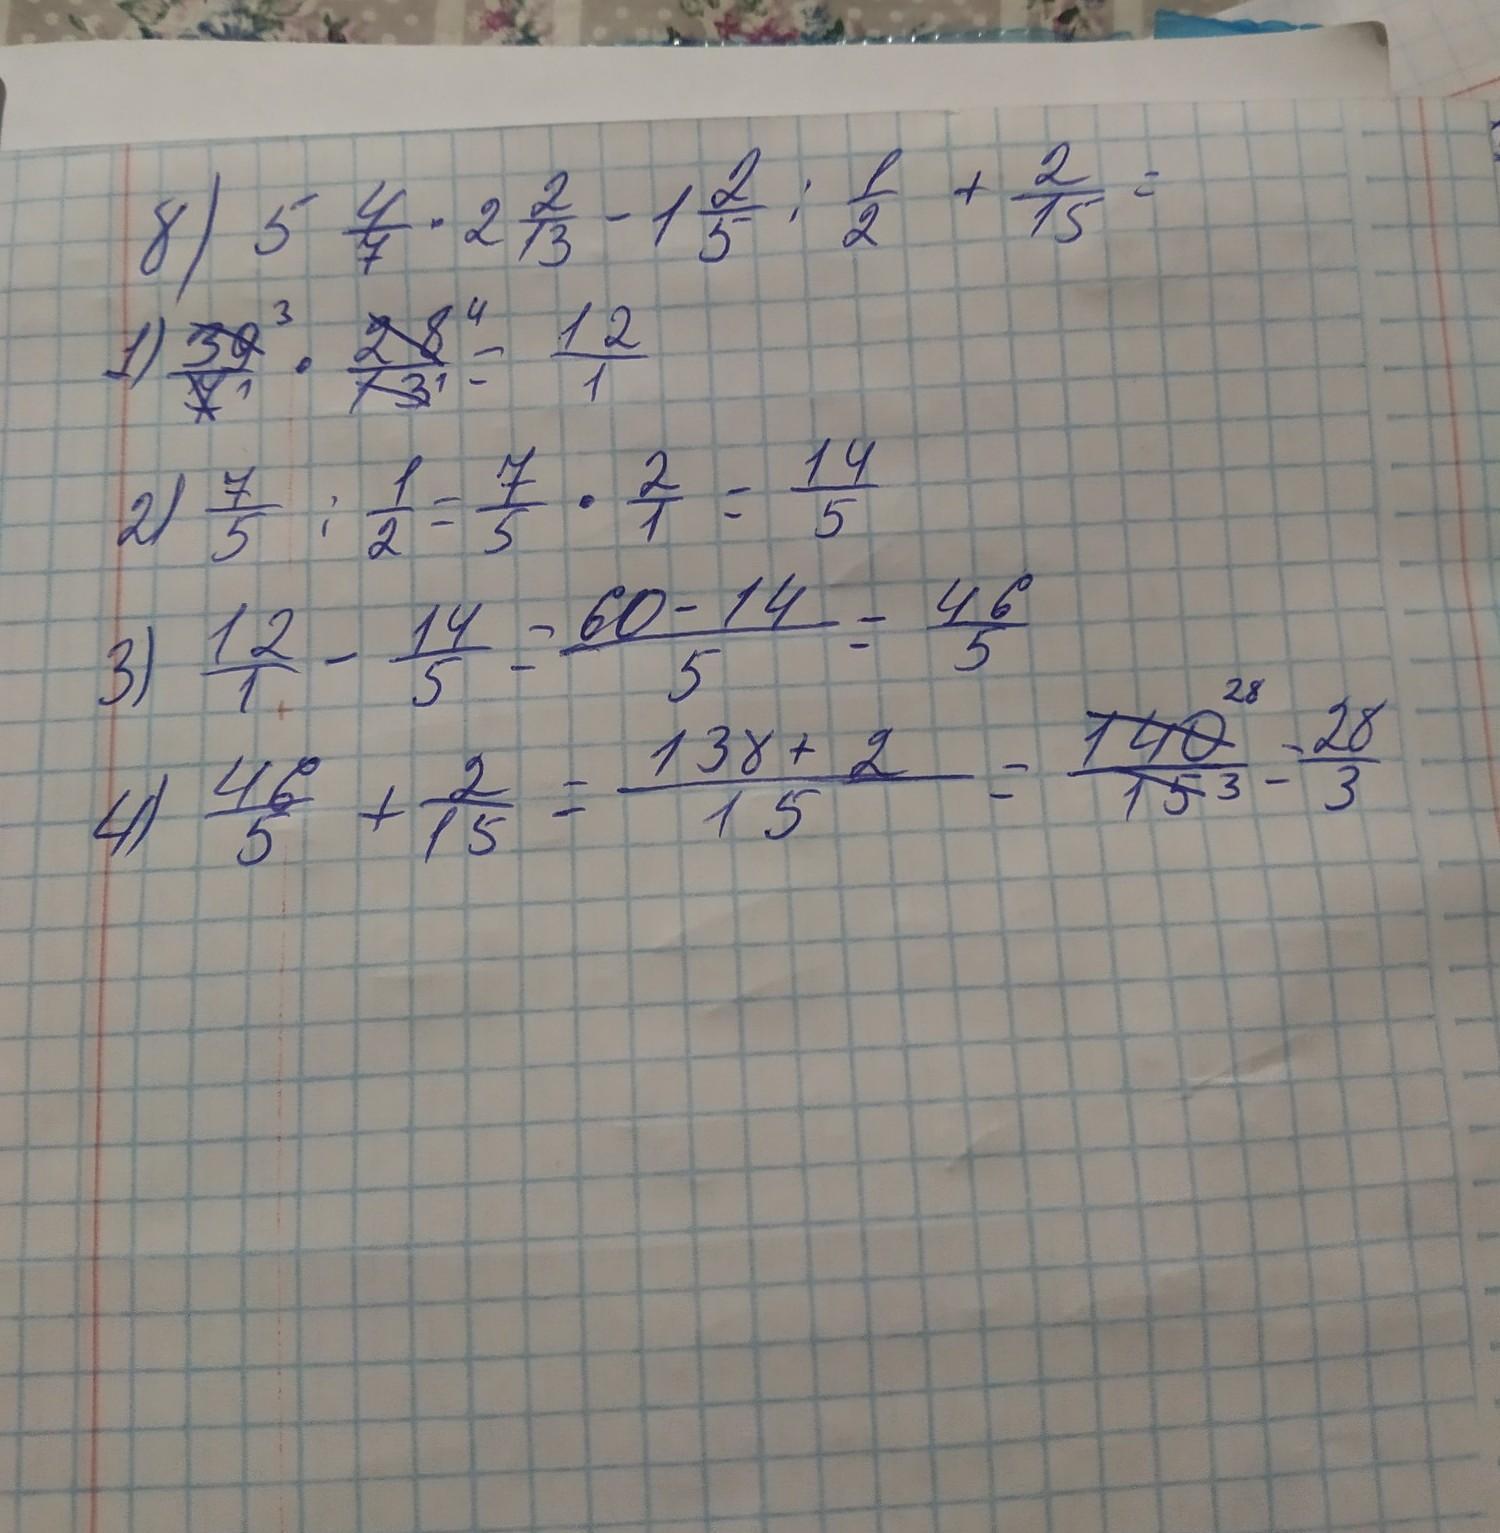 8) 5 4/7 · 2 2/13 - 1 2/5 : 1/2 + 2/15 =
1) 39/7 · 28/13 = 12/1
2) 7/5 : 1/2 = 7/5 · 2/1 = 14/5
3) 12/1 - 14/5 = 60-14/5 = 46/5
4) 46/5 + 2/15 = 138+2/15 = 140/15 = 28/3